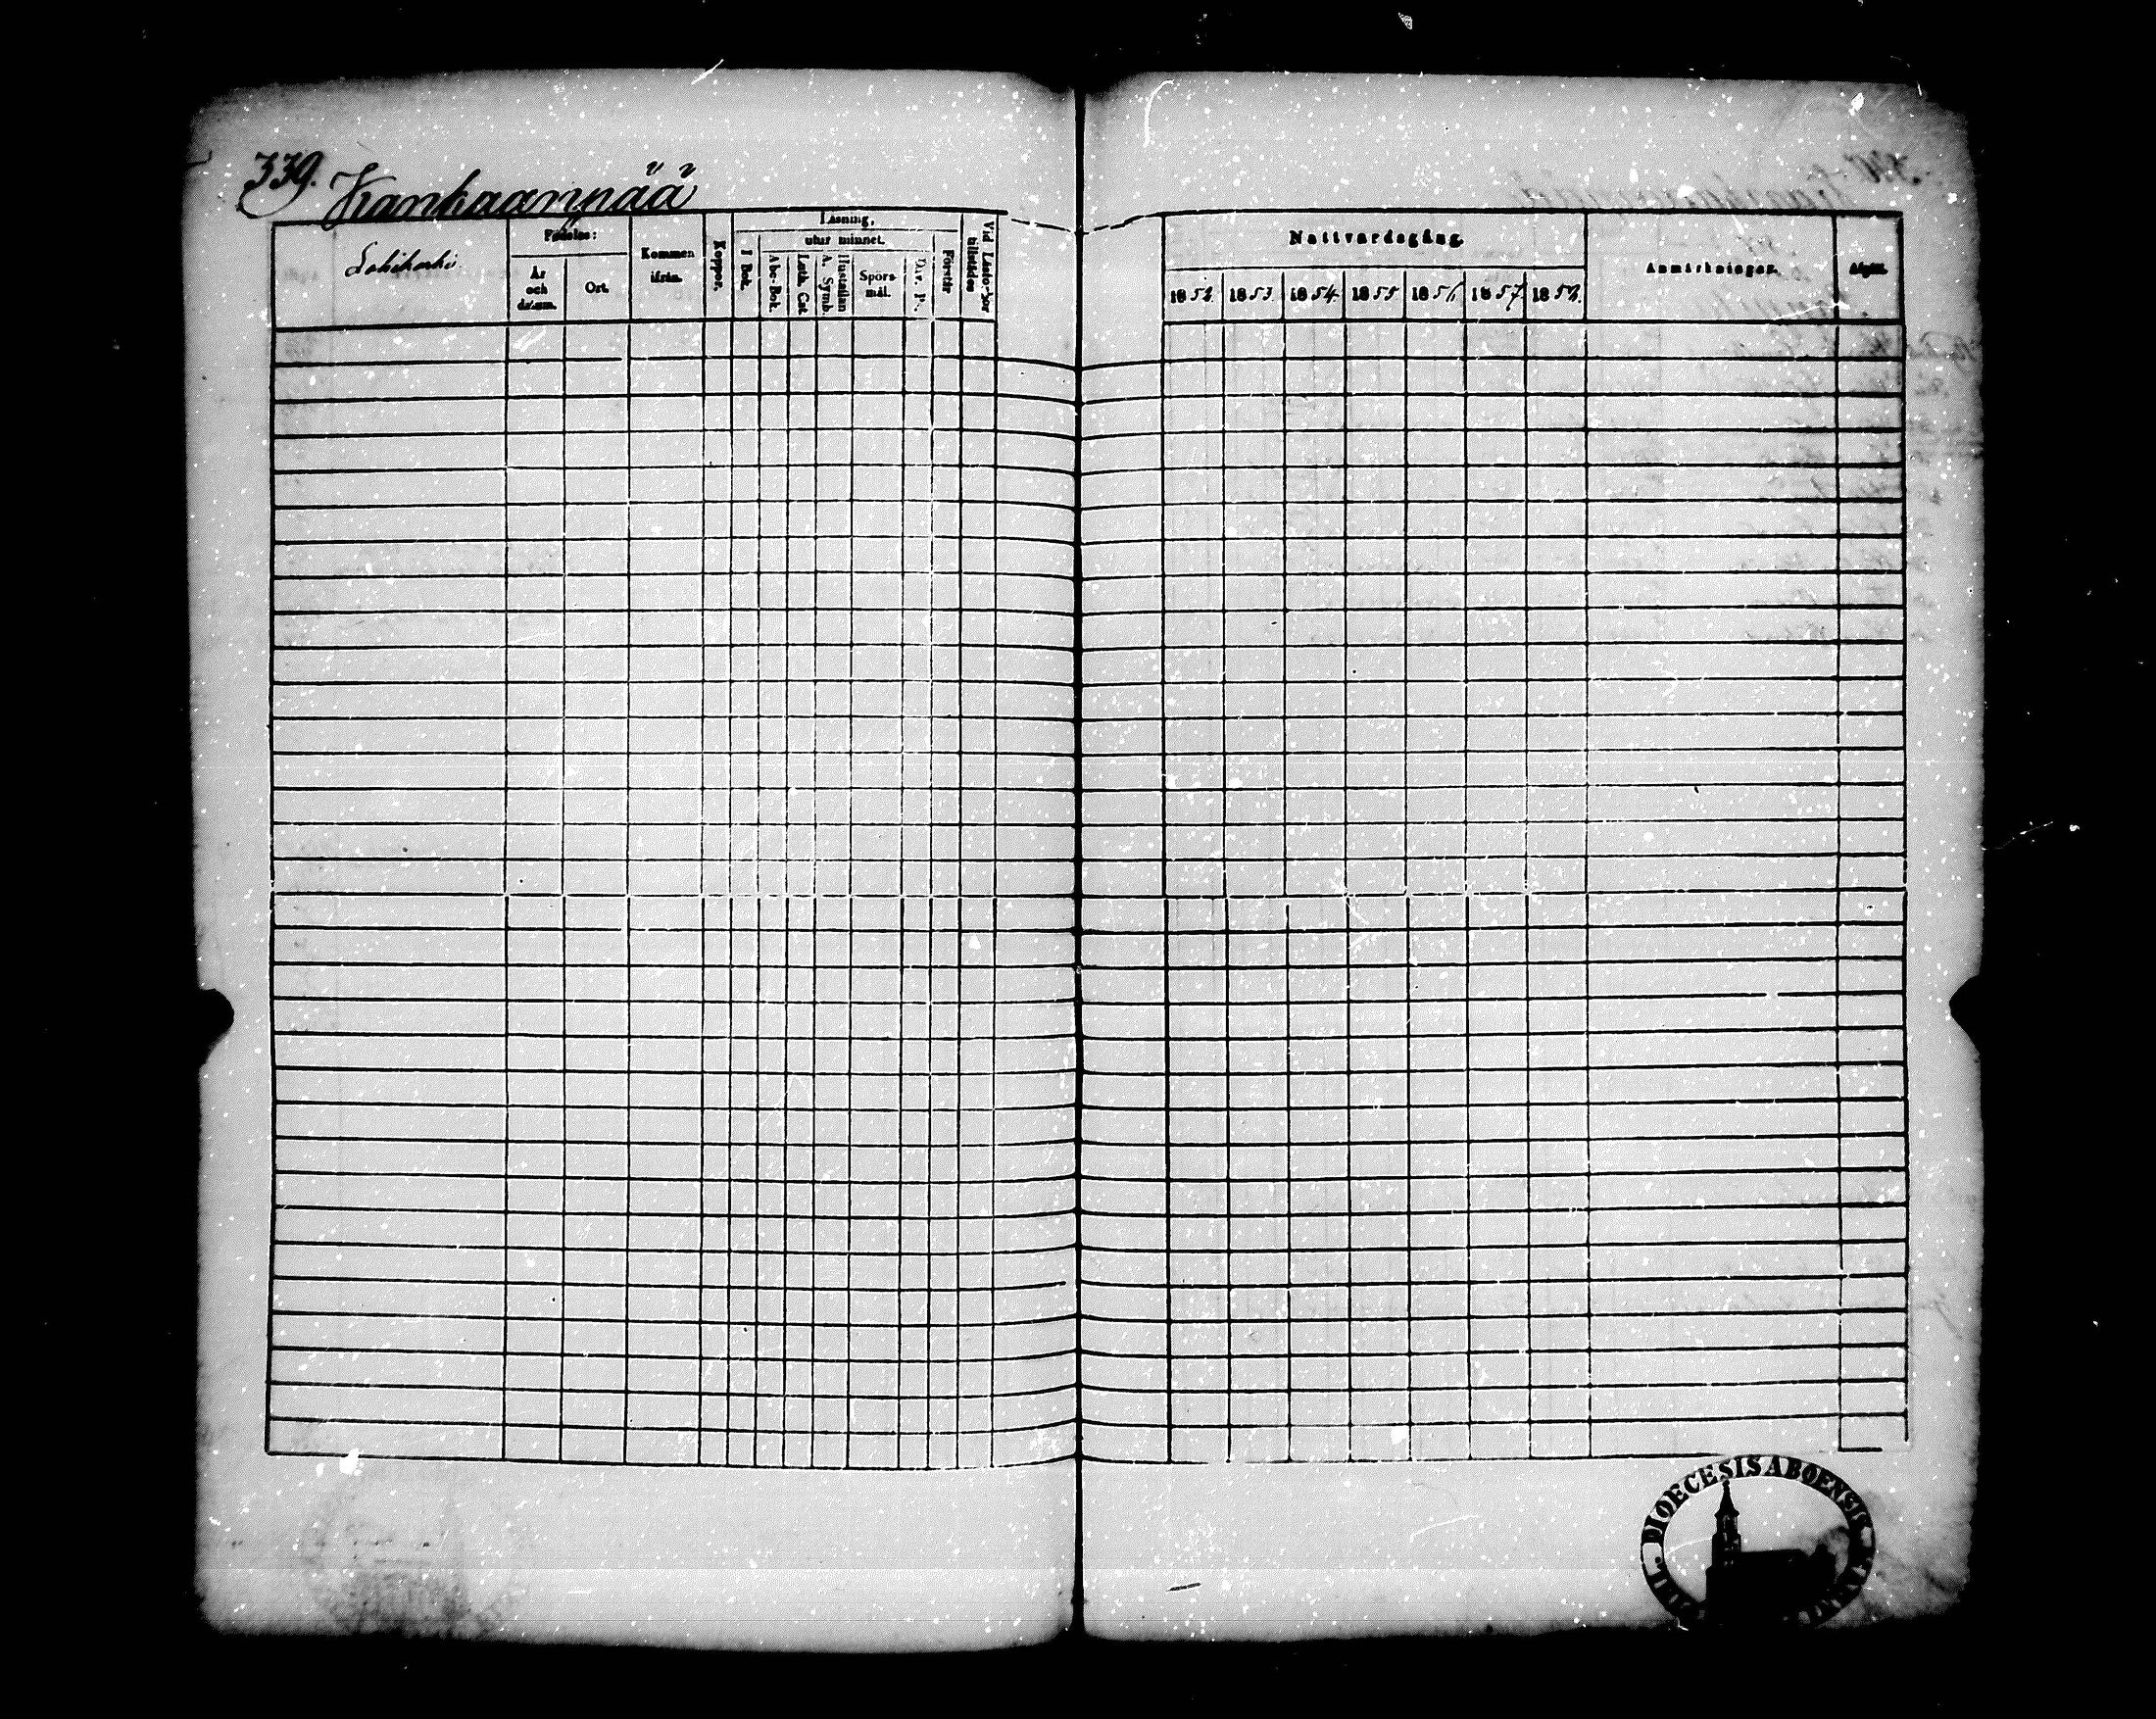 339. Kankaanpää
Lohikorki
Födelse:
År och datum.
Ort.
Kommen ifrån.
Koppor.
Läsning,
I Bok.
utur minnet.
Abc-Bok.
Luth. Cat.
A. Symb.
Hustaflan
Spörs mål.
Dav. P.
Förstår
Vid Läsförhör tillstädes
Nattvardsgång.
1852.
1853.
1854.
1855
1856
1857.
1858.
Anmärkningar.
Afgått.
DIOECESIS ABOENSIS